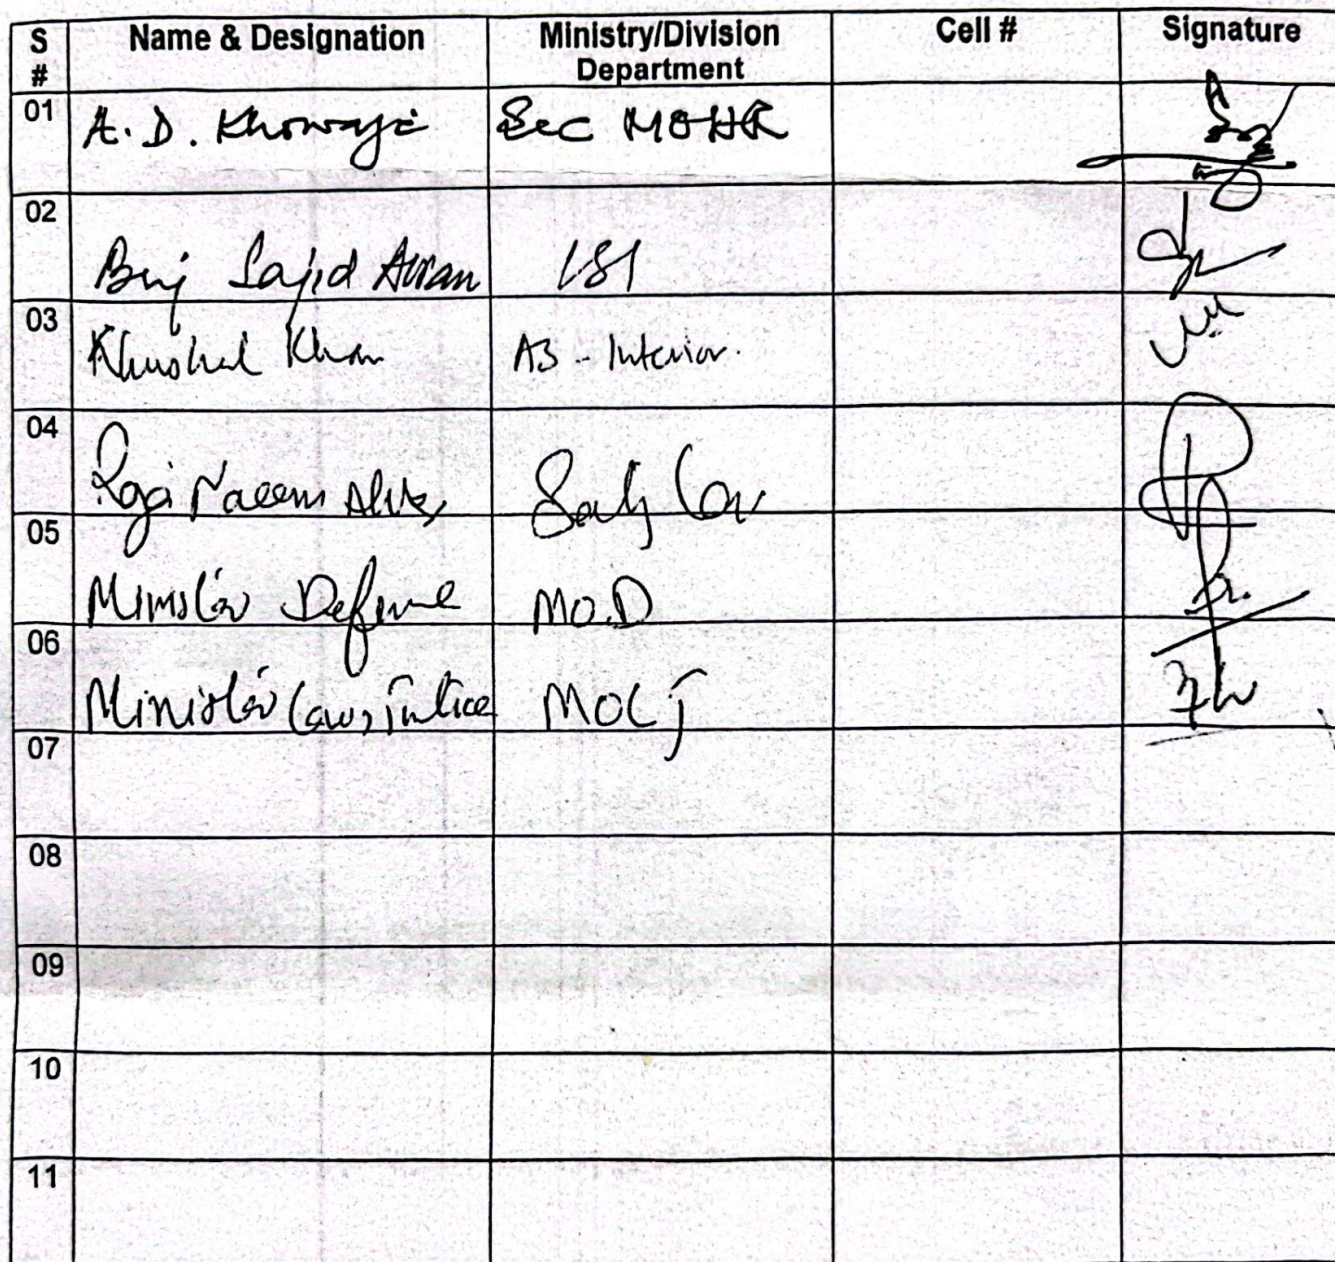 S # Name & Designation Ministry/Division Department Cell # Signature
01 A. D. Khowaja Sec MOHR
02 Brig Sajid Awan ISI
03 Khushal Khan AS - Interior.
04 Raja Naeem Secty Law
05 Minister Defence MO.D
06 Minister Law, Justice MOLJ
07
08
09
10
11